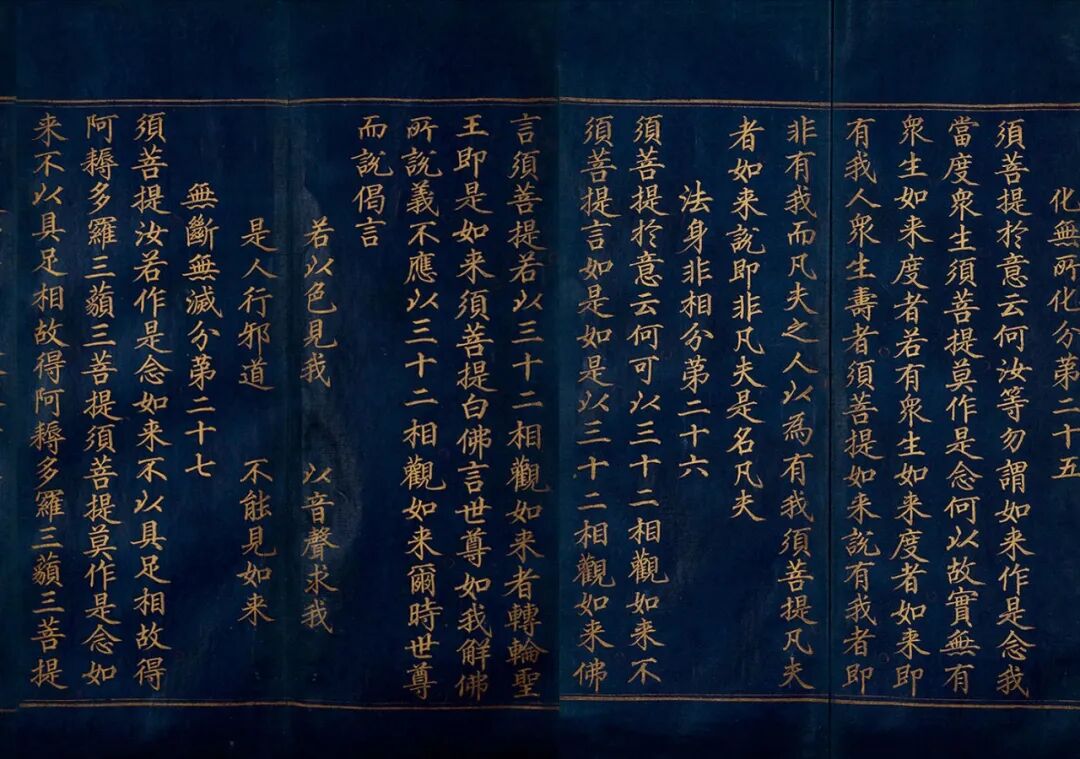 化無所化分第二十五
須菩提於意云何汝等勿謂如来作是念我
當度衆生須菩提莫作是念何以故實無有
衆生如来度者若有衆生如来度者如来即
有我人衆生壽者須菩提如来說有我者即
非有我而凡夫之人以為有我須菩提凡夫
者如来說即非凡夫是名凡夫
法身非相分第二十六
須菩提於意云何可以三十二相觀如来不
須菩提言如是如是以三十二相觀如来佛
言須菩提若以三十二相觀如来者轉輪聖
王即是如来須菩提白佛言世尊如我解佛
所說義不應以三十二相觀如来爾時世尊
而說偈言
若以色見我 以音聲求我
是人行邪道 不能見如来
無斷無滅分第二十七
須菩提汝若作是念如来不以具足相故得
阿耨多羅三藐三菩提須菩提莫作是念如
来不以具足相故得阿耨多羅三藐三菩提